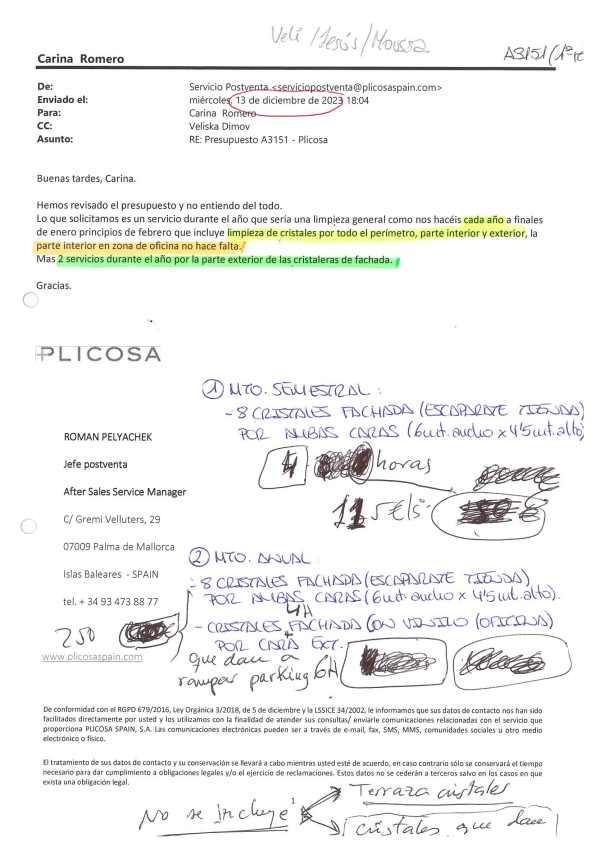 Veli / Jesús / Moussa
A3151/1ª
Carina Romero
De: Servicio Postventa <serviciopostventa@plicosaspain.com>
Enviado el: miércoles, 13 de diciembre de 2023 18:04
Para: Carina Romero
CC: Veliska Dimov
Asunto: RE: Presupuesto A3151 - Plicosa
Buenas tardes, Carina.
Hemos revisado el presupuesto y no entiendo del todo.
Lo que solicitamos es un servicio durante el año que sería una limpieza general como nos hacéis cada año a finales
de enero principios de febrero que incluye limpieza de cristales por todo el perímetro, parte interior y exterior, la
parte interior en zona de oficina no hace falta.
Mas 2 servicios durante el año por la parte exterior de las cristaleras de fachada.
Gracias.
PLICOSA
① MTO. SEMESTRAL:
- 8 CRISTALES FACHADA (ESCAPARATE TIENDA)
POR AMBAS CARAS (6mt. ancho x 4'5mt. alto)
4 horas
115 €
ROMAN PELYACHEK
Jefe postventa
After Sales Service Manager
C/ Gremi Velluters, 29
07009 Palma de Mallorca
Islas Baleares - SPAIN
tel. + 34 93 473 88 77
250
www.plicosaspain.com
② MTO. ANUAL:
- 8 CRISTALES FACHADA (ESCAPARATE TIENDA)
POR AMBAS CARAS (6mt. ancho x 4'5mt. alto).
4H
- CRISTALES FACHADA CON VINILO (OFICINA)
POR CARA EXT.
que dan a
rampar parking 6H
De conformidad con el RGPD 679/2016, Ley Orgánica 3/2018, de 5 de diciembre y la LSSICE 34/2002, le informamos que sus datos de contacto nos han sido
facilitados directamente por usted y los utilizamos con la finalidad de atender sus consultas/ enviarle comunicaciones relacionadas con el servicio que
proporciona PLICOSA SPAIN, S.A. Las comunicaciones electrónicas pueden ser a través de e-mail, fax, SMS, MMS, comunidades sociales u otro medio
electrónico o físico.
El tratamiento de sus datos de contacto y su conservación se llevará a cabo mientras usted esté de acuerdo, en caso contrario sólo se conservará el tiempo
necesario para dar cumplimiento a obligaciones legales y/o el ejercicio de reclamaciones. Estos datos no se cederán a terceros salvo en los casos en que
exista una obligación legal.
1
No se incluye
Terraza cristales
cristales que dan